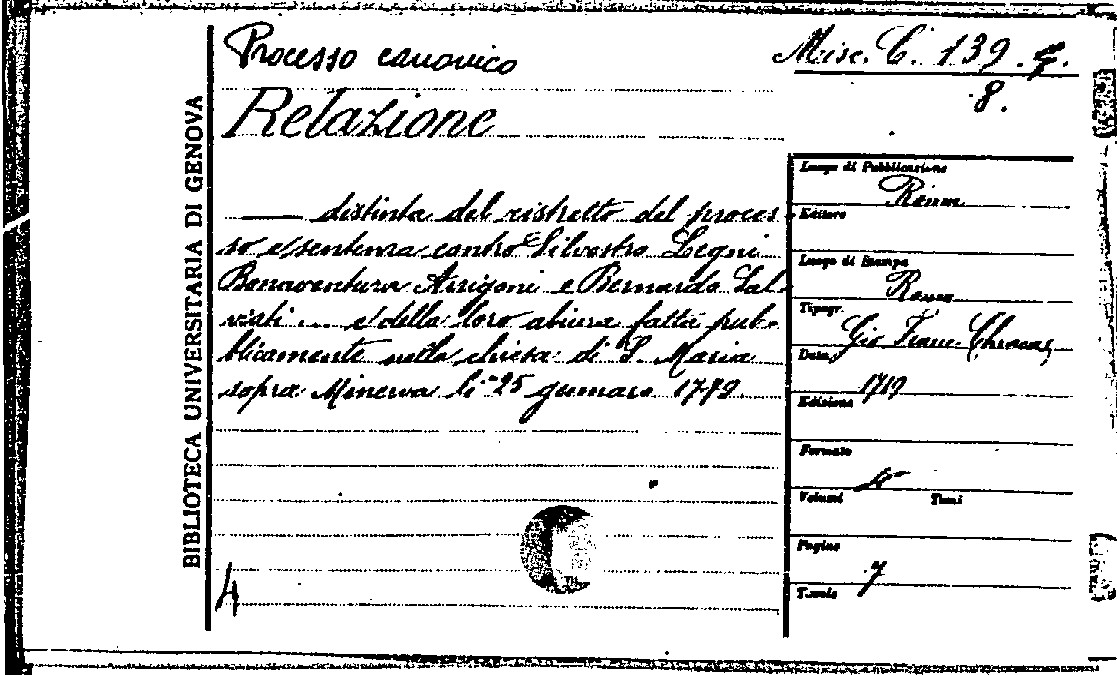 Processo canonico
Misc. C. 139. 7.
8.
Relazione
BIBLIOTECA UNIVERSITARIA DI GENOVA
— distinta del ristretto del proces-
so e sentenza contro Silvestro Legni
Bonaventura Arrigoni e Bernardo Sal-
viati ... e della loro abiura fatta pub-
blicamente nella chiesa di S. Maria
sopra Minerva li 25 gennaro 1719
Luogo di Pubblicazione
Roma
Editore
Luogo di Stampa
Roma
Tipogr.
Gio Franc. Chracas
Data
1719
Edizione
Formato
Volumi Tomi
Pagine
7
Tavole
4